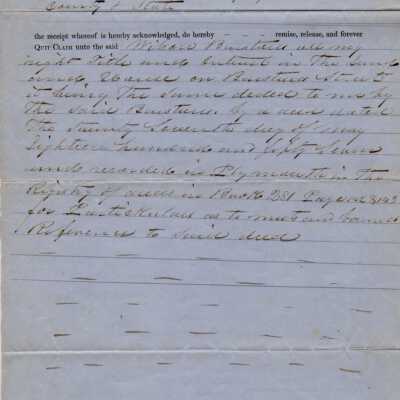 County & State
the receipt whereof is hereby acknowledged, do hereby – – – remise, release, and forever
QUIT-CLAIM unto the said Wilson Barstow all my
right Title and Interest in the Land
and House on Barstow Street
it being the same deeded to me by
the said Barstow. by a deed dated
The Twenty Seventh day of May
Eighteen hundred and fifty Seven
and recorded in Plymouth in the
Registry of deeds in Book 281 Page
for Particulars as to and bounds
Reference to said deed